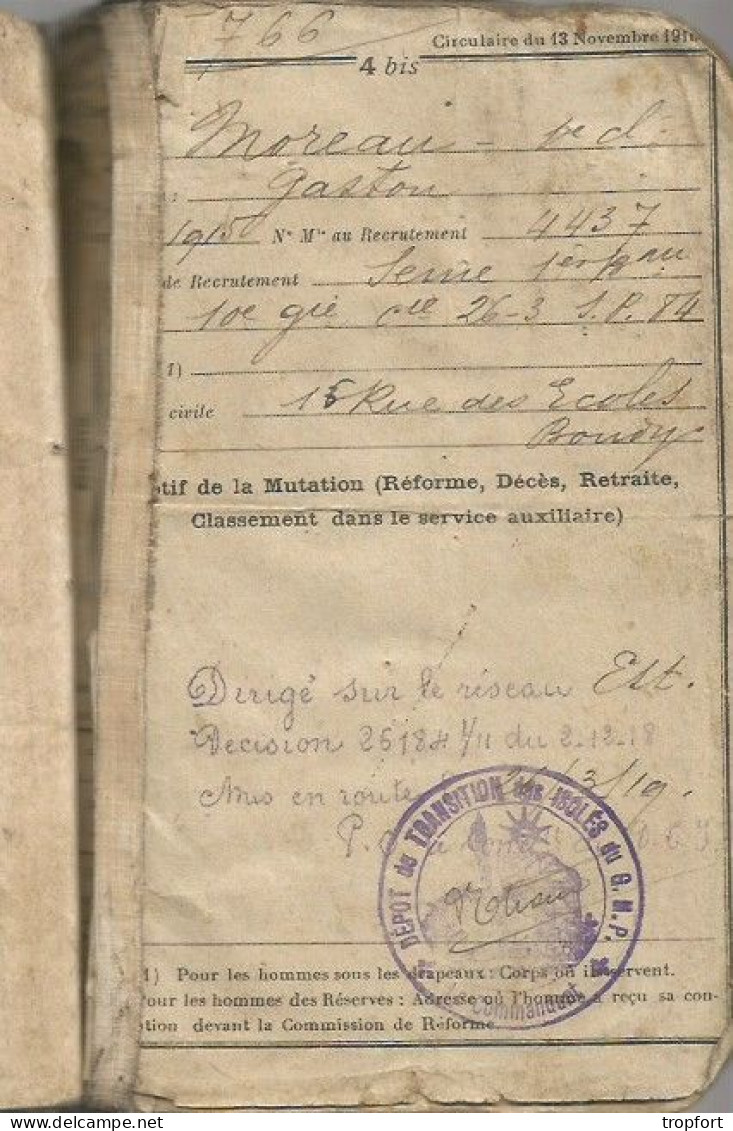 766
Circulaire du 13 Novembre 191
4 bis
Moreau - 
Gaston
1915 Nº Mle au Recrutement 4437
de Recrutement Seine 1er
10e gie cie 26-3 S.P. 84
1)
civile 15 Rue des Ecoles
Bondy
tif de la Mutation (Réforme, Décès, Retraite,
Classement dans le service auxiliaire)
Dirigé sur le réseau Est.
Decision 25184 1/11 du 2-12-18
Mis en route 3/19.
P.
DÉPOT de TRANSITION des ISOLÉS du G.M.P.
Commandant
1) Pour les hommes sous les drapeaux : Corps où ils servent.
our les hommes des Réserves : Adresse où l'homme a reçu sa con-
tion devant la Commission de Réforme.
tropfort